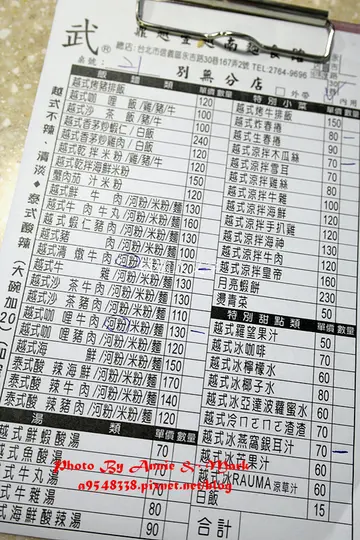 武®
總店：台北市信義區永吉路30巷167弄2號 TEL:2764-9696
桌號： 別無分店 □外帶
飯麵類 單價 數量
越式烤豬排飯 120
越式咖哩飯/雞/豬/牛 100
越式沙茶飯/豬/牛 100
越式香茅炒蝦仁/白飯 240
越式香茅炒雞肉/白飯
越式乾拌米粉/雞/豬/牛 120
越式乾拌海鮮米粉 150
蟹肉茄汁米粉 100
越式鮮牛肉/河粉/米粉/麵 130
越式牛肉牛丸/河粉/米粉/麵 160
越式蝦仁豬肉/河粉/米粉/麵 130
越式豬肉/河粉/米粉/麵 100
越式清燉牛肉/河粉/米粉/麵 120
越式牛雜/河粉/米粉/麵 130
越式沙茶牛肉/河粉/米粉/麵 130
越式沙茶豬肉/河粉/米粉/麵 110
越式咖哩牛肉/河粉/米粉/麵 130
越式咖哩豬肉/河粉/米粉/麵 120
越式海鮮/河粉/米粉/麵 150
泰式酸辣海鮮/河粉/米粉/麵 170
泰式酸辣牛肉/河粉/米粉/麵 140
泰式酸辣豬肉/河粉/米粉/麵 120
湯類 單價 數量
越式鮮蝦酸湯 70
越式魚酸湯 70
越式牛丸湯
越式牛雜湯 70
越式海鮮酸辣湯 90
越式不辣、清淡◆泰式酸辣
(大碗加20)
特別小菜 單價 數量
越式烤牛排飯 150
越式炸春捲 80
越式生春捲 90
越式涼拌木瓜絲 70
越式涼拌雪耳
越式涼拌雞絲
越式涼拌牛雜
越式涼拌海鮮
越式涼拌手扒雞
越式涼拌海神
越式涼拌牛肉
越式涼拌皇帝
月亮蝦餅 230
燙青菜 50
特別甜點類 單價 數量
越式羅望果汁
越式冰咖啡
越式冰檸檬水
越式冰椰子水
越式冰亞達波蘿蜜水 60
越式冷ㄇㄛㄇㄛ渣渣 70
越式冰燕窩銀耳汁 70
越式冰芒果汁
越式冰RAUMA涼草汁 60
白飯 15
合計
Photo By Annie & Mark
a9548338.pixnet.net/blog